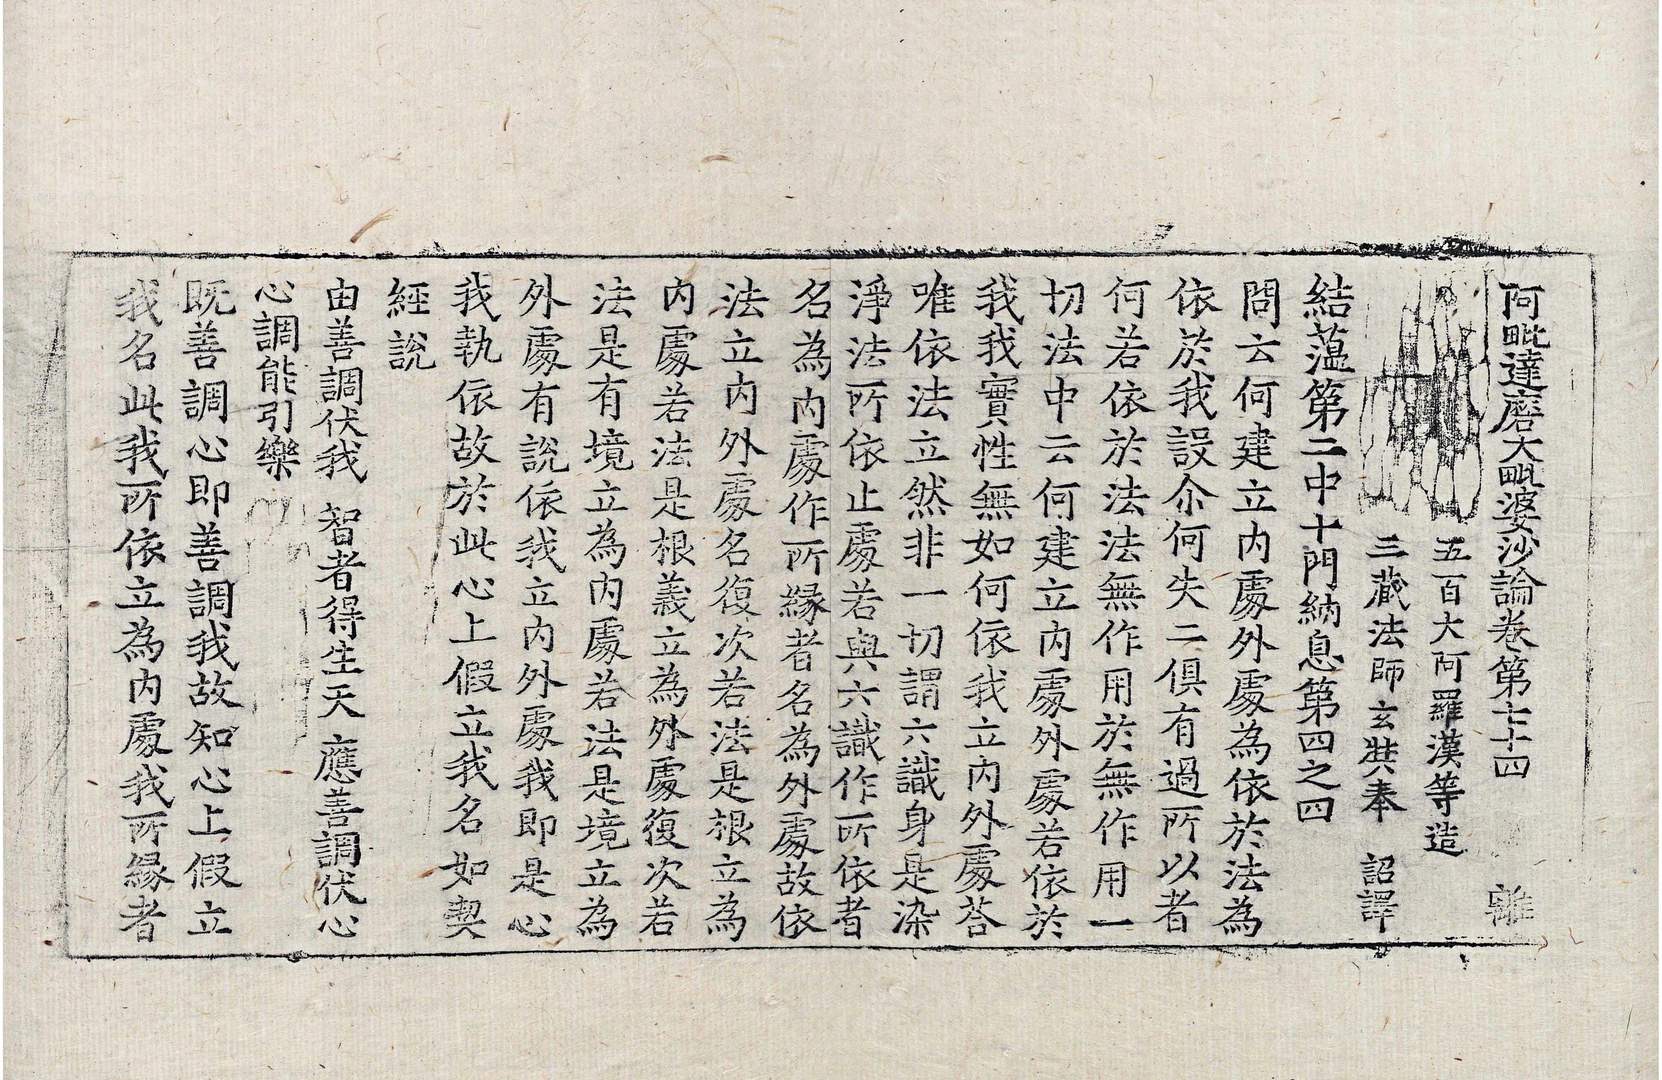 阿毗達磨大毗婆沙論卷第七十四 離
五百大阿羅漢等造
三藏法師玄奘奉 詔譯
結蘊第二中十門納息第四之四
問云何建立內處外處為依於法為
依於我設尒何失二俱有過所以者
何若依於法法無作用於無作用一
切法中云何建立內處外處若依於
我我實性無如何依我立內外處荅
唯依法立然非一切謂六識身是染
淨法所依止處若與六識作所依者
名為內處作所緣者名為外處故依
法立內外處名復次若法是根立為
內處若法是根義立為外處復次若
法是有境立為內處若法是境立為
外處有說依我立內外處我即是心
我執依故於此心上假立我名如契
經說
由善調伏我 智者得生天 應善調伏心
心調能引樂
既善調心即善調我故知心上假立
我名此我所依立為內處我所緣者